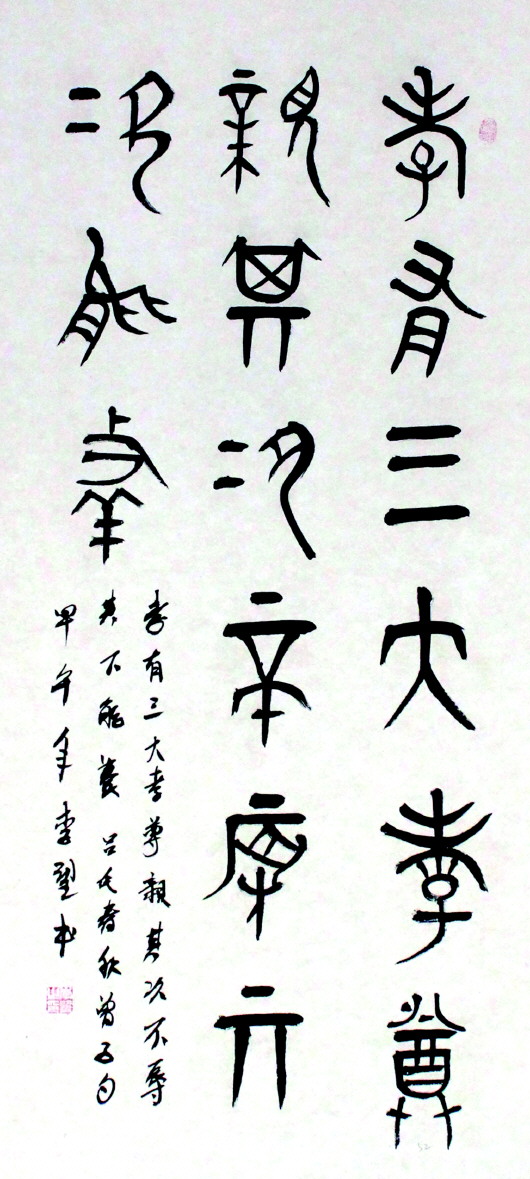 孝有三大孝尊
親其次不辱亓
次能養
孝有三大孝尊親其次不辱
其下能養 吕氏春秋曾子句
甲午年李书